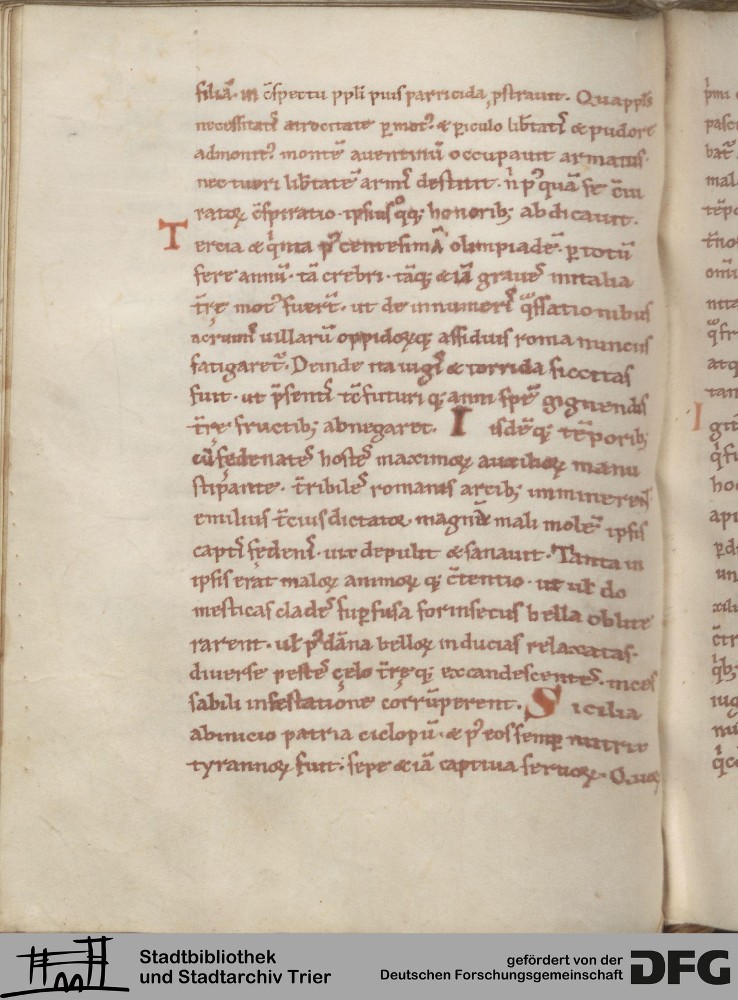 filiā. in c̄spectu pp̄li pius parricida ꝓstrauit. Qua pp̄ls
necessitatis atrocitate ꝑmot᷒ & ꝑiculo lib̄tatis & pudoris
admonit᷒ montē auentinū occupauit armatus.
nec tueri lib̄tatē armis destitit. n̄ p᷒quā se c̄iu
ratoꝝ c̄spiratio. ipsius q̊qꝫ honoribꝫ abdicauit.
Tercia & q̇nta p᷒ centesimā olimpiadē. ꝑ totū
fere annū. tā crebri. tāqꝫ &iā graues in italia
t̄re mot᷒ fuer̄t. ut de innumeris q̄ssationibus
ac ruinis uillarū oppidoꝝqꝫ assiduis roma nunciis
fatigaret᷑. Deinde ita iugis & torrida siccitas
fuit. ut p̄sentis tc̄ futuriqꝫ anni spem gignendis
t̄re fructibꝫ abnegaret. Iisdēqꝫ tēporibꝫ
cū fidenates hostes maximoꝝ auxilioꝝ manu
stipante. t̄ribiles romanis arcibꝫ imminerent
emilius t̄cius dictator magnā mali molē ipsis
captis fidenis. uix depulit & sanauit. Tanta in
ipsis erat maloꝝ animoꝝqꝫ c̄tentio. ut ul̄ do
mesticas clades suꝑfusa forinsecus bella oblitte
rarent. ul̄ p᷒ dāna belloꝝ inducias relaxatas.
diuerse pestes celo t̄reqꝫ excandescentes. inces
sabili infestatione corrūperent. Sicilia
ab inicio patria ciclopū. & p᷒ eos semꝑ nutrix
tyrannoꝝ fuit. sepe &iā captiua seruoꝝ. Quoꝝ
Stadtbibliothek
und Stadtarchiv Trier
gefördert von der
Deutschen Forschungsgemeinschaft
DFG